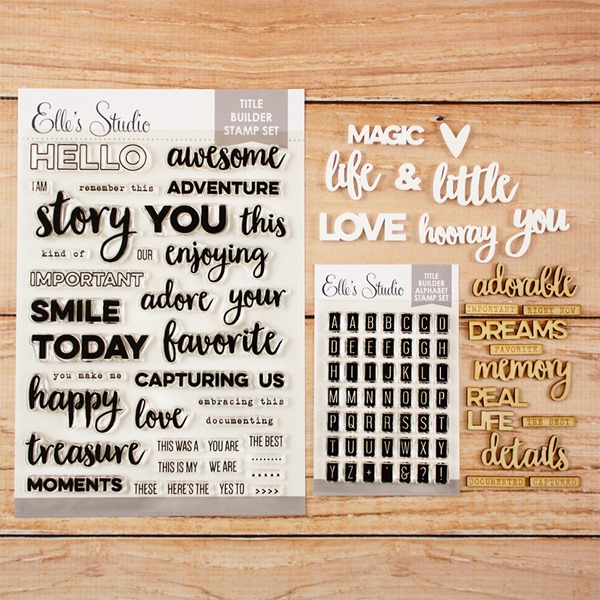 Elle's Studio
TITLE
BUILDER
STAMP SET
HELLO awesome
I AM remember this ADVENTURE
story YOU this
kind of OUR enjoying
IMPORTANT
adore your
SMILE
TODAY favorite
you make me CAPTURING US
happy love embracing this
documenting
treasure THIS WAS A YOU ARE THE BEST
THIS IS MY WE ARE
MOMENTS THESE HERE'S THE YES TO >>>>
MAGIC
life & little
LOVE hooray you
Elle's Studio
TITLE
BUILDER
ALPHABET
STAMP SET
A A B B C C D
D E E F G H H
H I J K L L
M M N N O O P
Q R R S S T
T U V W X Y
Y Z + & ? !
adorable
IMPORTANT RIGHT NOW
DREAMS
FAVORITE
memory
REAL
LIFE THE BEST
details
DOCUMENTED CAPTURED